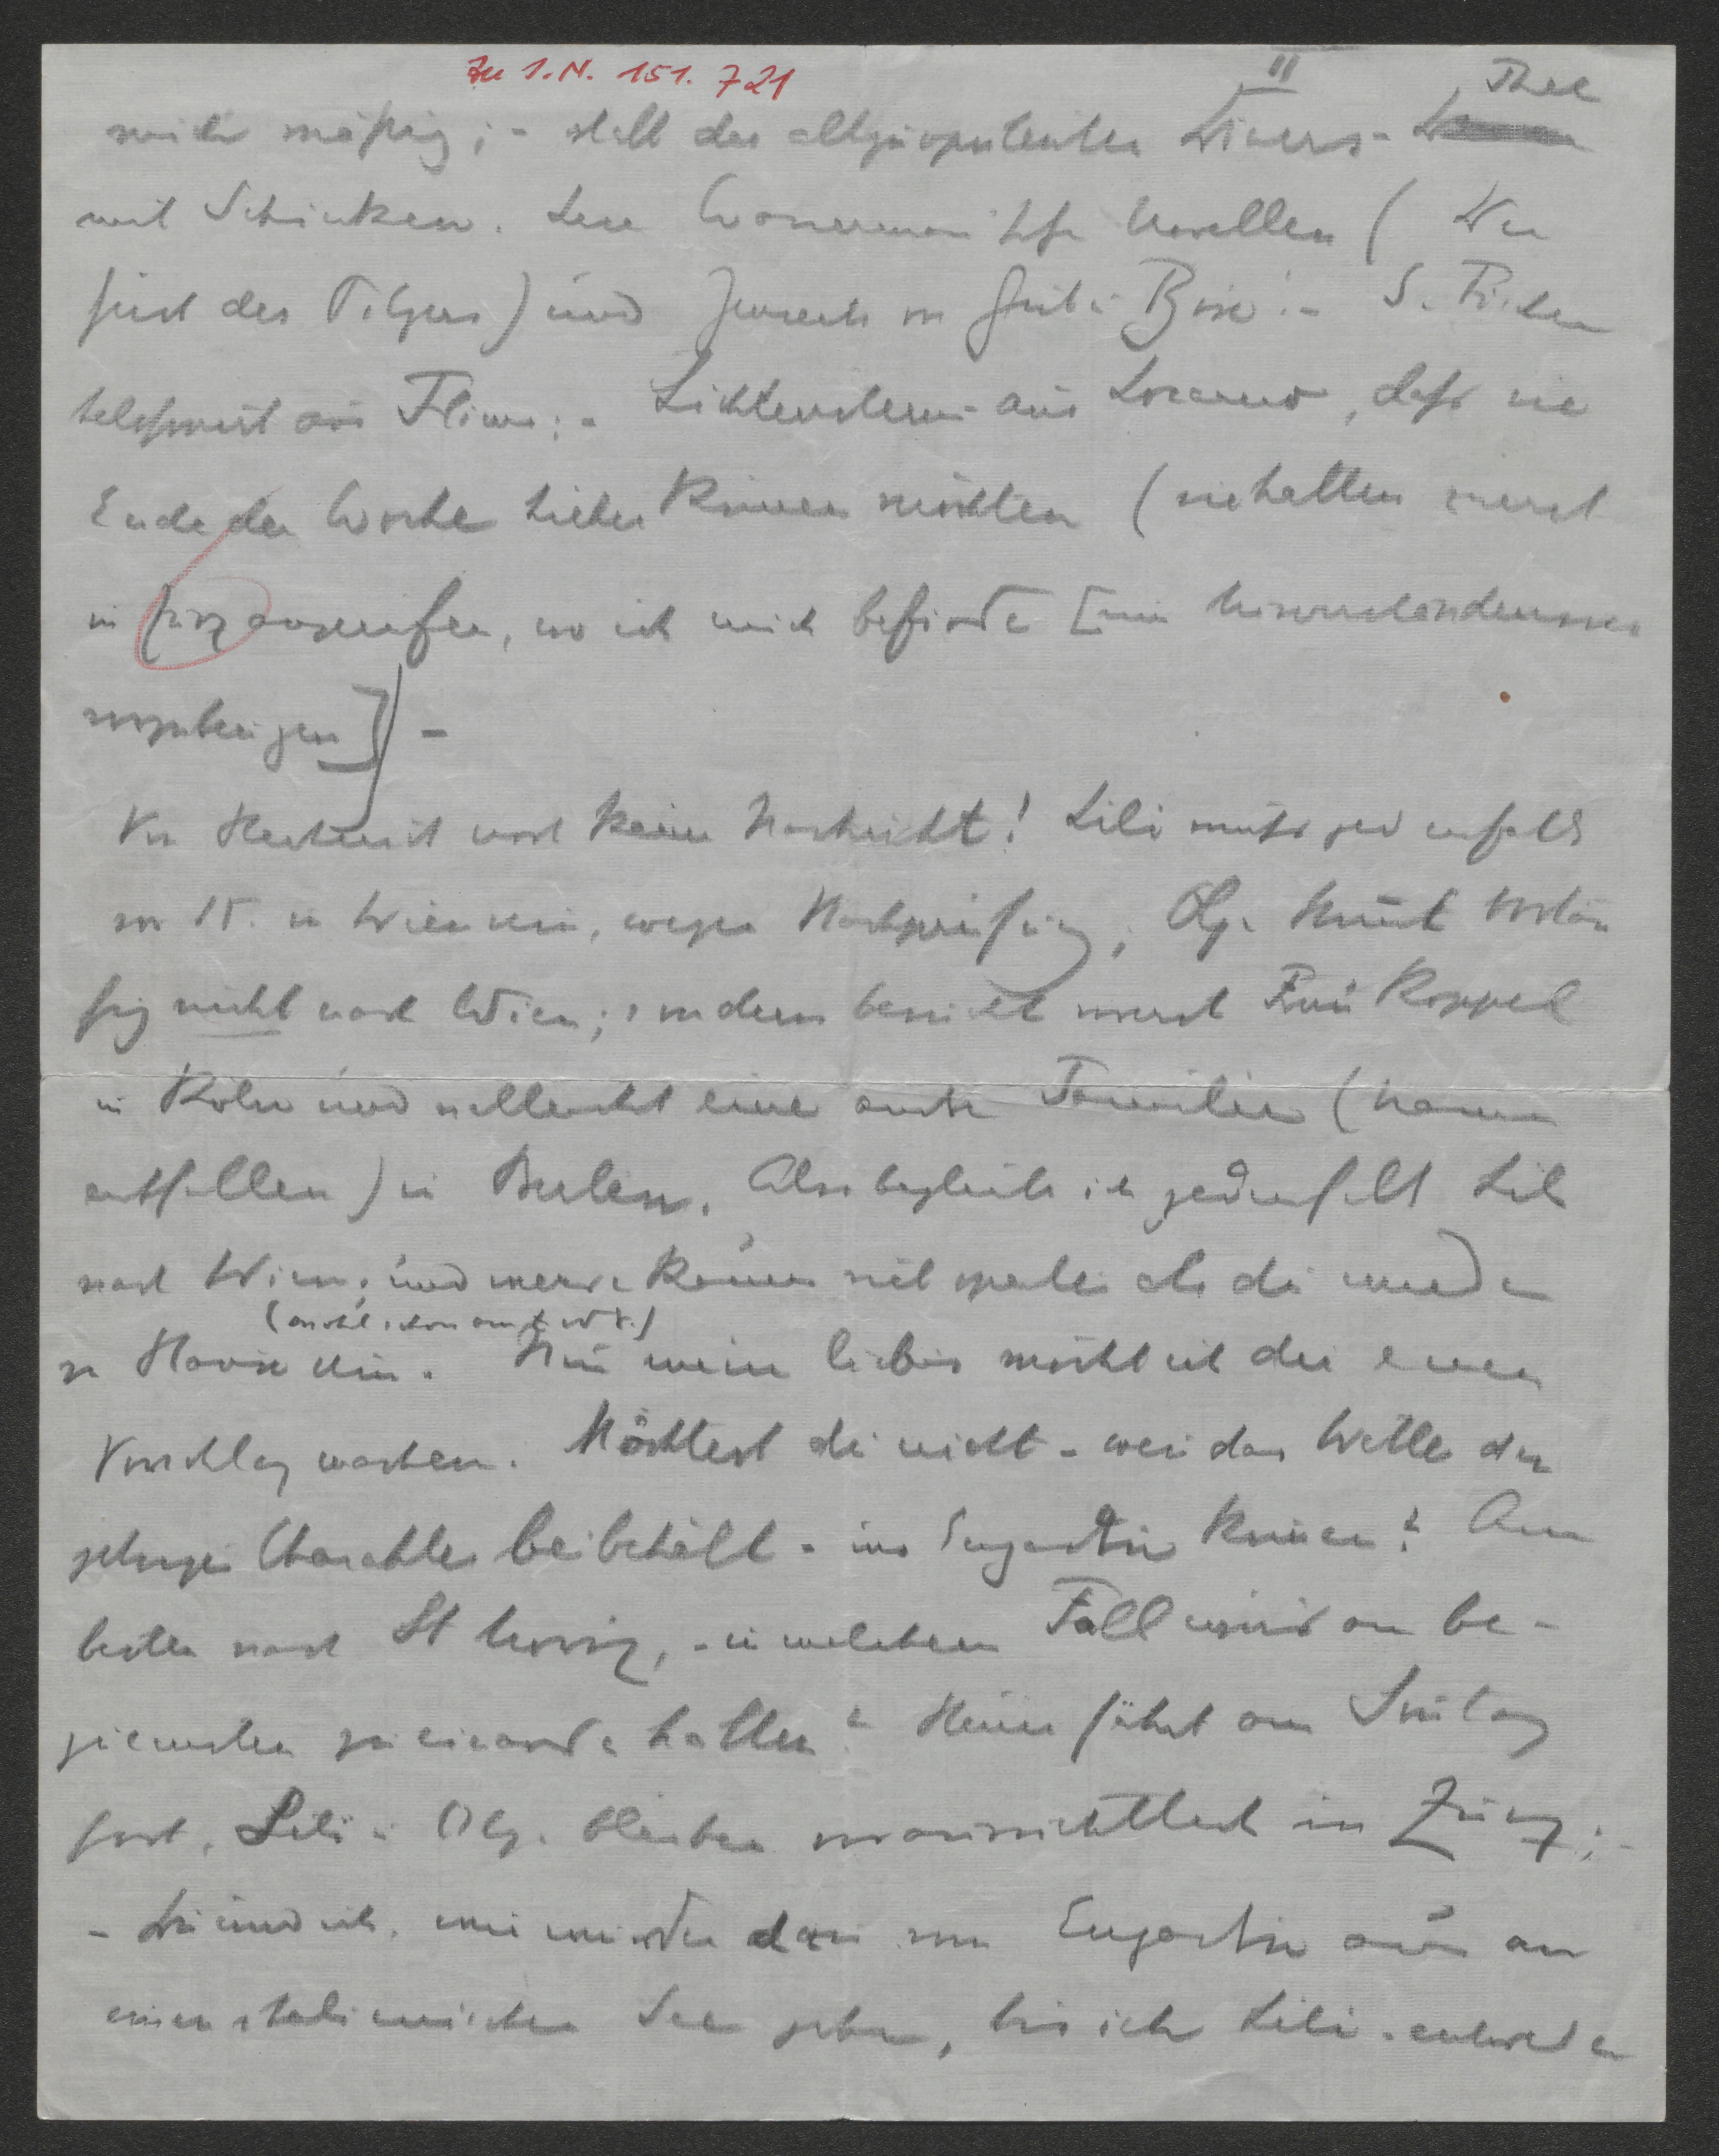 Zu I.N. 151.721
II
mich mäßig; – statt des allzu opulenten Diners – Thee
mit Schinken. Lese Wassermannsche Novellen (Der
Geist des Pilgers) und Jenseits von Gut u Böse. – S. Fischer
telefonirt aus Flims; – Lichtensterns aus Locarno, daß sie
Ende der Woche hieher kommen möchten (sie hatten zuerst
in Zürz angerufen, wo ich mich befinde [um Misverständnissen
vorzubeugen]) –
Von Heini noch keine Nachricht! Lili muß jedenfalls
am 15. in Wien sein, wegen Nachprüfung; Olga kommt vorläu
fig nicht nach Wien; sondern besucht zuerst Frau Koppel
in Köln und vielleicht eine andre Familie (Name
entfallen) in Berlin. Also begleite ich jedenfalls Lili
nach Wien; und werde kaum viel später als du wieder
zu Hause sein.
Nun mein liebes möcht ich dir einen
Vorschlag machen. Möchtest du nicht – wenn das Wetter den
jetzigen Charakter beibehält – ins Engadin kommen? Am
besten nach St Moriz, – in welchem Fall wir's am be-
quemsten zu einander hätten? Heini fährt am Sonntag
fort, Lili u Olga bleiben voraussichtlich in Zuoz; –
– Du und ich, wir würden dann vom Engadin aus an
einen italienischen See gehen, bis ich Lili – entweder